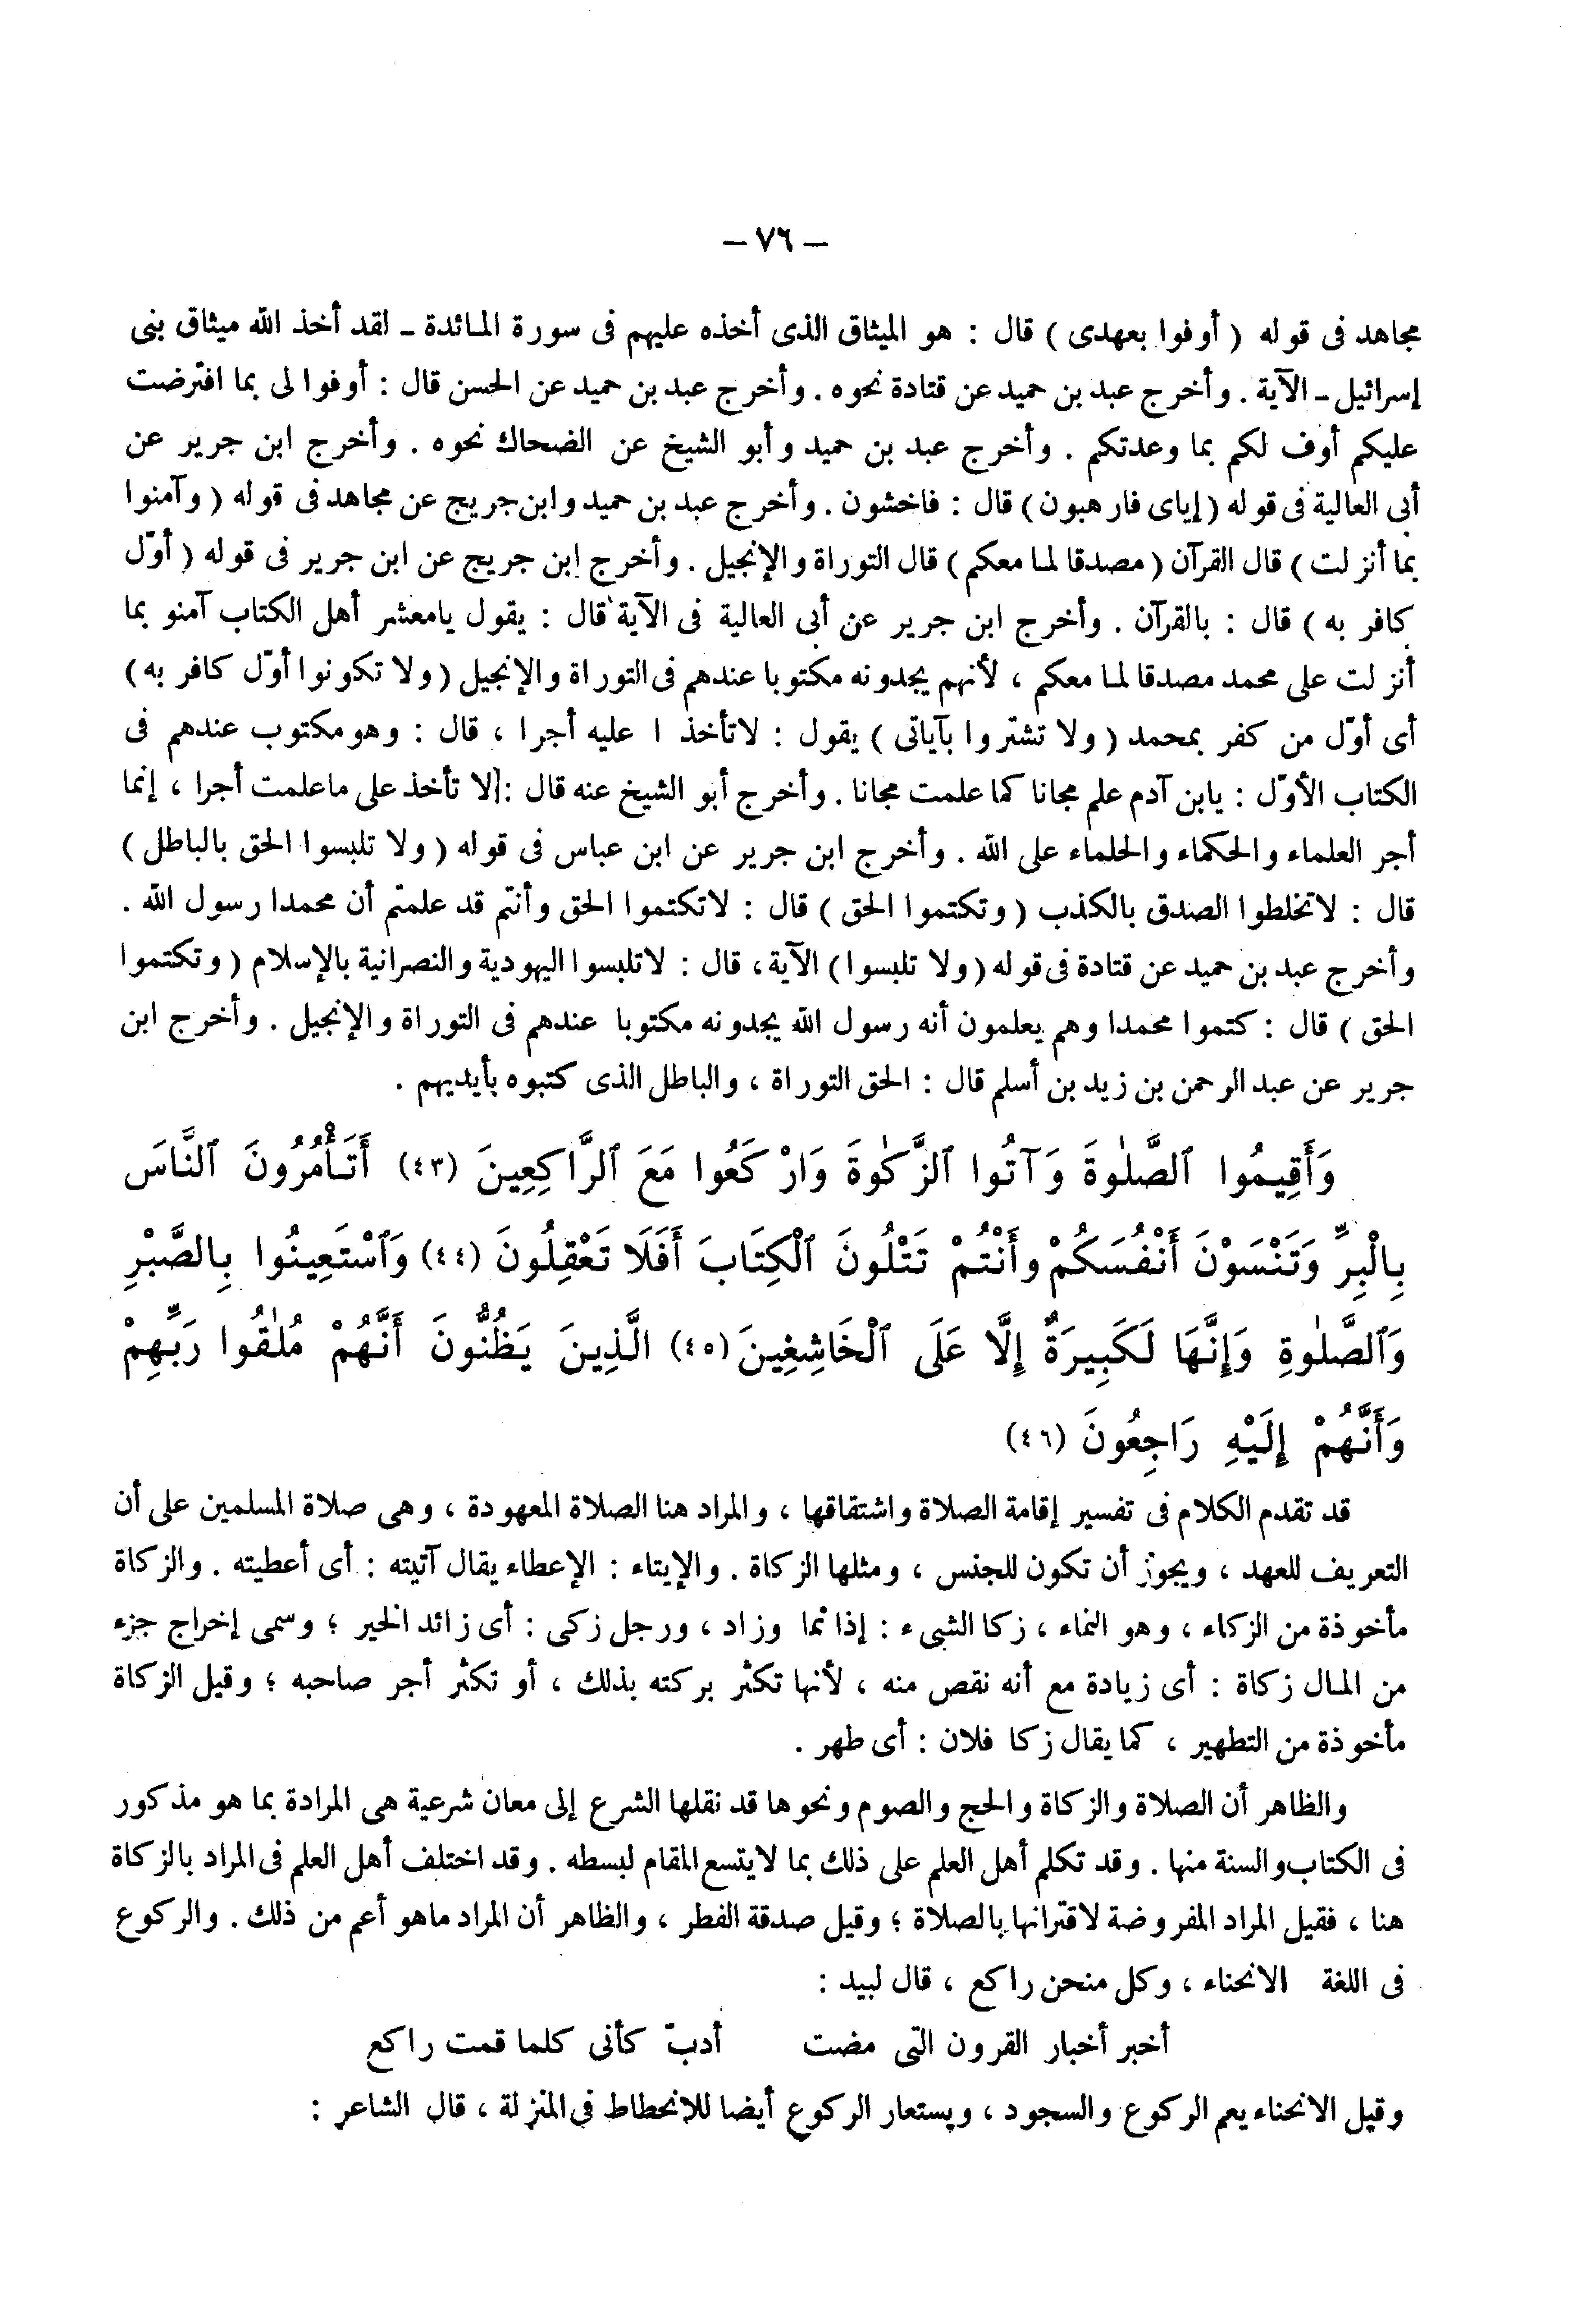 — ٧٦ —
مجاهد فى قوله ( أوفوا بعهدى ) قال : هو الميثاق الذى أخذه عليهم فى سورة المـائدة ـ لقد أخذ الله ميثاق بنى
إسرائيل ـ الآية . وأخرج عبد بن حميد عن قتادة نحوه . وأخرج عبد بن حميد عن الحسن قال : أوفوا لى بما افترضت
عليكم أوف لكم بما وعدتكم . وأخرج عبد بن حميد وأبو الشيخ عن الضحاك نحوه . وأخرج ابن جرير عن
أبى العالية فى قوله ( إياى فارهبون ) قال : فاخشون . وأخرج عبد بن حميد وابن جريج عن مجاهد فى قوله ( وآمنوا
بما أنزلت ) قال القرآن ( مصدقا لمـا معكم ) قال التوراة والإنجيل . وأخرج إبن جريج عن ابن جرير فى قوله ( أوّل
كافر به ) قال : بالقرآن . وأخرج ابن جرير عن أبى العالية فى الآية قال : يقول يامعشر أهل الكتاب آمنو بما
أنزلت على محمد مصدقا لمـا معكم ، لأنهم يجدونه مكتوبا عندهم فى التوراة والإنجيل ( ولا تكونوا أوّل كافر به )
أى أوّل من كفر بمحمد ( ولا تشتروا بآياتى ) يقول : لاتأخذ ا عليه أجرا ، قال : وهو مكتوب عندهم فى
الكتاب الأوّل : يابن آدم علم مجانا كما علمت مجانا . وأخرج أبو الشيخ عنه قال : لا تأخذ على ماعلمت أجرا ، إنما
أجر العلماء والحكماء والحلماء على الله . وأخرج ابن جرير عن ابن عباس فى قوله ( ولا تلبسوا الحق بالباطل )
قال : لاتخلطوا الصدق بالكذب ( وتكتموا الحق ) قال : لاتكتموا الحق وأنتم قد علمتم أن محمدا رسول الله .
وأخرج عبد بن حميد عن قتادة فى قوله ( ولا تلبسوا ) الآية ، قال : لاتلبسوا اليهودية والنصرانية بالإسلام ( وتكتموا
الحق ) قال : كتموا محمدا وهم يعلمون أنه رسول الله يجدونه مكتوبا عندهم فى التوراة والإنجيل . وأخرج ابن
جرير عن عبد الرحمن بن زيد بن أسلم قال : الحق التوراة ، والباطل الذى كتبوه بأيديهم .
وَأَقِيمُوا ٱلصَّلٰوةَ وَآتُوا ٱلزَّكٰوةَ وَارْكَعُوا مَعَ ٱلرَّاكِعِينَ (٤٣) أَتَأْمُرُونَ ٱلنَّاسَ
بِالْبِرِّ وَتَنْسَوْنَ أَنْفُسَكُمْ وأَنْتُمْ تَتْلُونَ ٱلْكِتَابَ أَفَلَا تَعْقِلُونَ (٤٤) وَٱسْتَعِينُوا بِالصَّبْرِ
وَٱلصَّلٰوةِ وَإِنَّهَا لَكَبِيرَةٌ إِلَّا عَلَى ٱلْخَاشِعِينَ (٤٥) الَّذِينَ يَظُنُّونَ أَنَّهُمْ مُلٰقُوا رَبِّهِمْ
وَأَنَّهُمْ إِلَيْهِ رَاجِعُونَ (٤٦)
قد تقدم الكلام فى تفسير إقامة الصلاة واشتقاقها ، والمراد هنا الصلاة المعهودة ، وهى صلاة المسلمين على أن
التعريف للعهد ، ويجوز أن تكون للجنس ، ومثلها الزكاة . والإيتاء : الإعطاء يقال آتيته : أى أعطيته . والزكاة
مأخوذة من الزكاء ، وهو النماء ، زكا الشىء : إذا نما وزاد ، ورجل زكى : أى زائد الخير ؛ وسمى إخراج جزء
من المـال زكاة : أى زيادة مع أنه نقص منه ، لأنها تكثر بركته بذلك ، أو تكثر أجر صاحبه ؛ وقيل الزكاة
مأخوذة من التطهير ، كما يقال زكا فلان : أى طهر .
والظاهر أن الصلاة والزكاة والحج والصوم ونحوها قد نقلها الشرع إلى معان شرعية هى المرادة بما هو مذكور
فى الكتاب والسنة منها . وقد تكلم أهل العلم على ذلك بما لايتسع المقام لبسطه . وقد اختلف أهل العلم فى المراد بالزكاة
هنا ، فقيل المراد المفروضة لاقترانها بالصلاة ؛ وقيل صدقة الفطر ، والظاهر أن المراد ماهو أعم من ذلك . والركوع
فى اللغة الانحناء ، وكل منحن راكع ، قال لبيد :
أخبر أخبار القرون التى مضت أدبّ كأنى كلما قمت راكع
وقيل الانحناء يعم الركوع والسجود ، ويستعار الركوع أيضا للانحطاط فى المنزلة ، قال الشاعر :